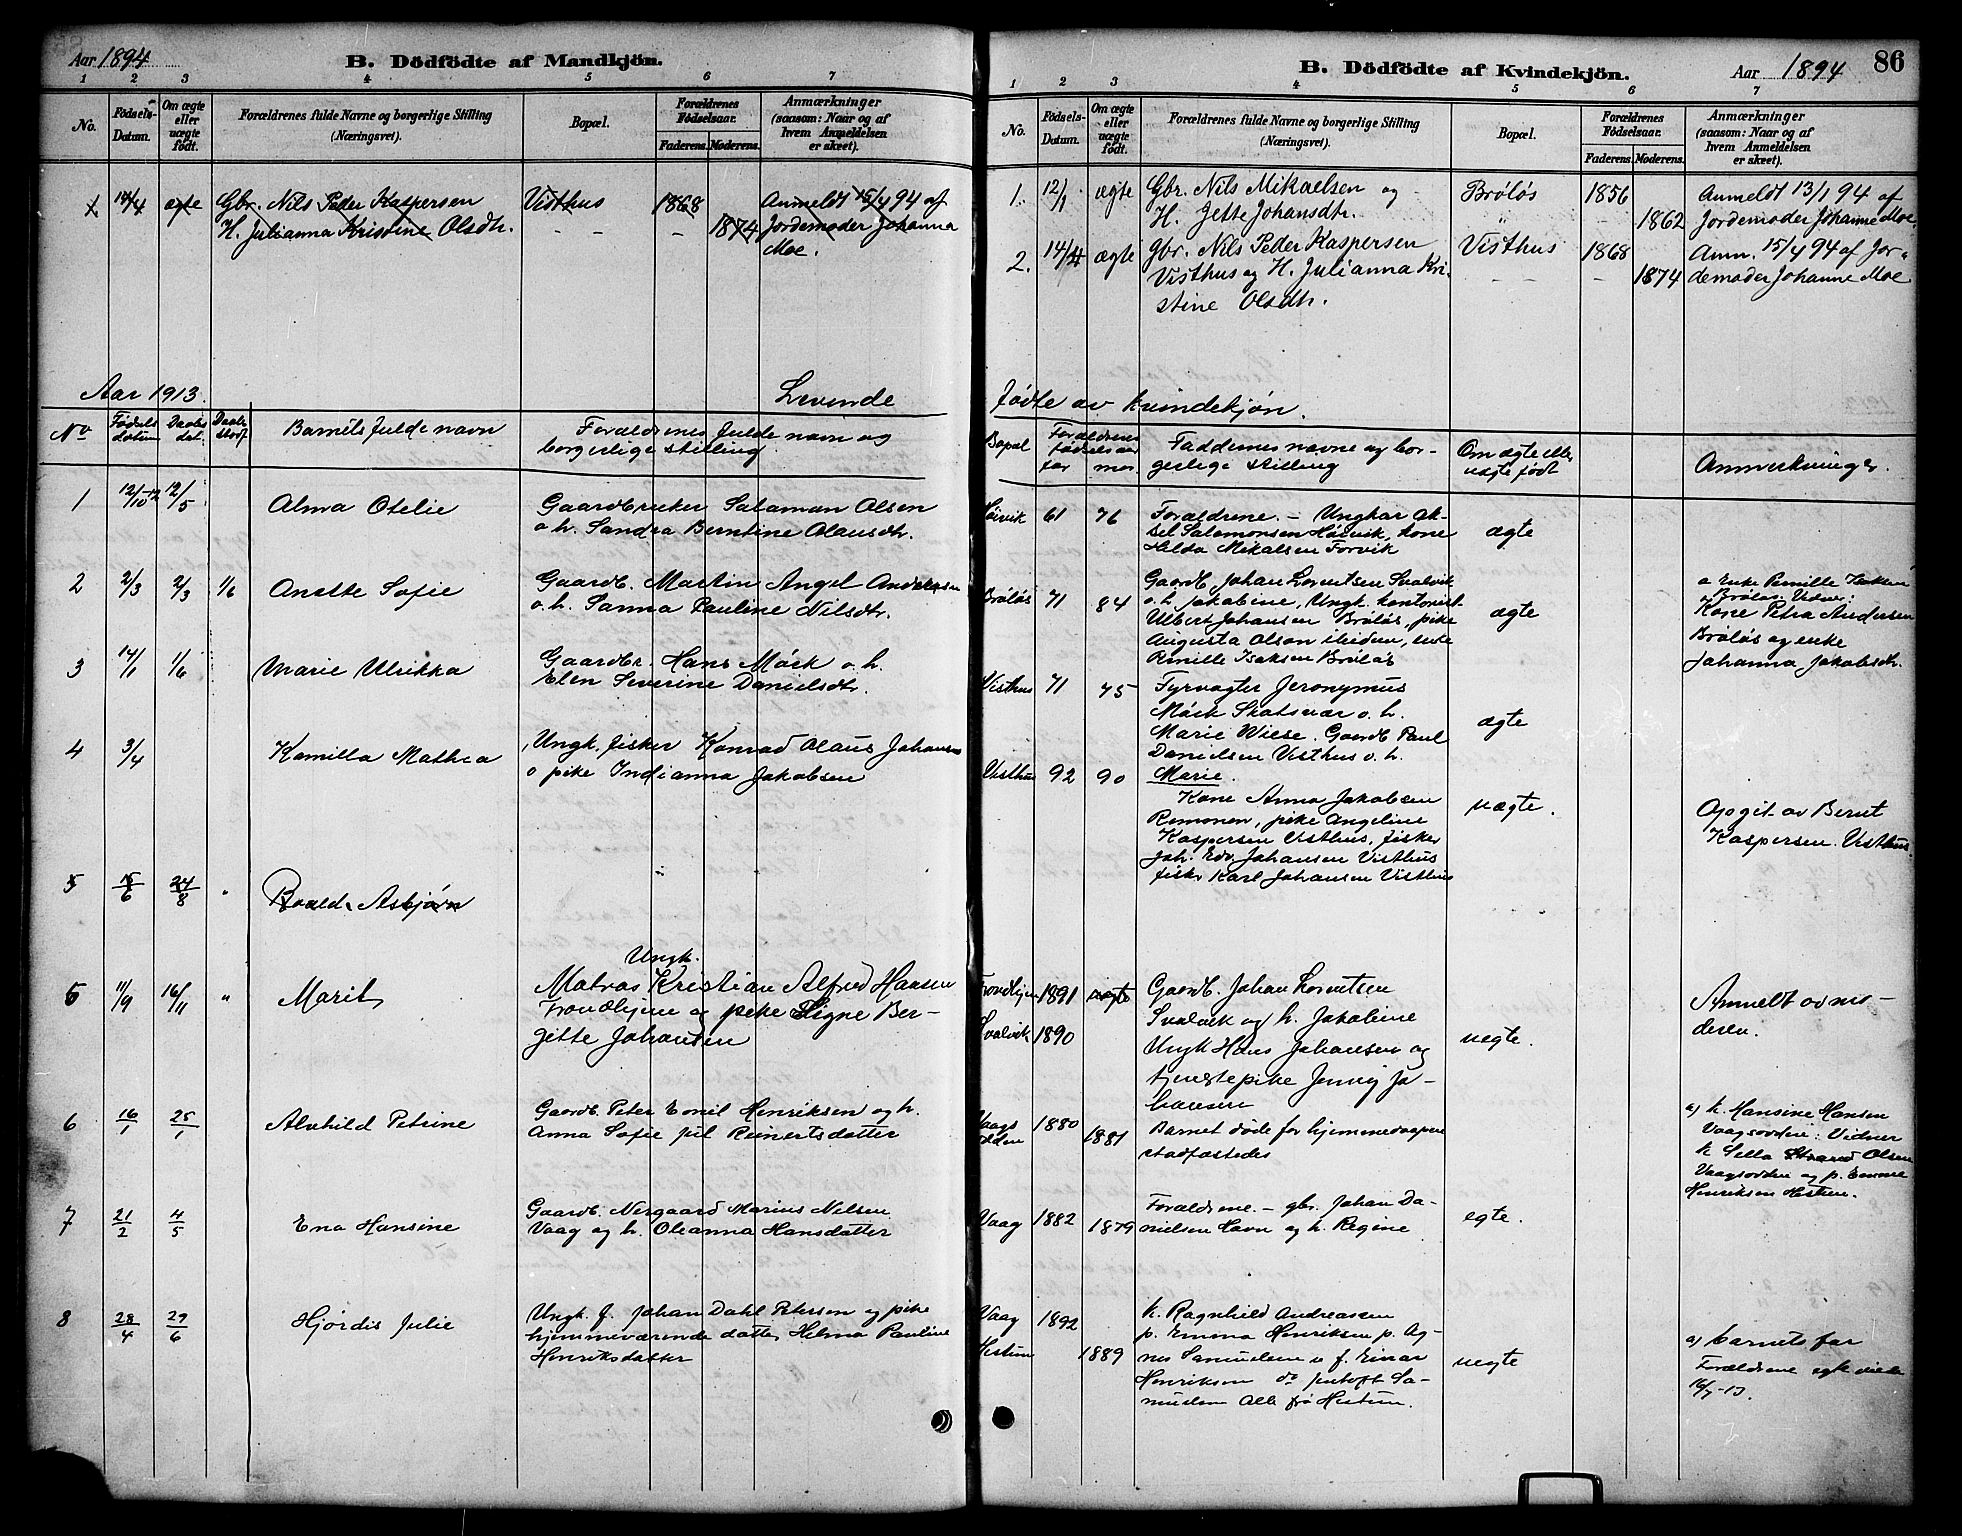 Aar 1894
B. Dödfödte af Mandkjön.
1 2 3 4 5 6 7
No. Födsels-Datum. Om ægte eller uægte født. Forældrenes fulde Navne og borgerlige Stilling (Næringsvei). Bopæl. Forældrenes Födselsaar. Faderens. Moderens. Anmærkninger (saasom: Naar og af hvem Anmeldelsen er skeet).
1 14/4 ægte Gbr. Nils Peder Kaspersen Visthus 1868 Anmeldt 15/4 94 af
H. Julianna Kristine Olsdtr. – – – 1874 Jordemoder Johanna
Moe.
Aar 1913. Levende
No Fødsels datum Daabs dat. Barnets fulde navn Forældrenes fulde navn og
borgerlige stilling
1 12/10 12 12/5 Alma Otelie Gaardbruker Salamon Olsen
o. h. Sandra Berntine Olausdtr.
2 2/3 2/3 1/6 Anette Sofie Gaardb. Martin Angel Andersen
o. h. Sanna Pauline Nilsdtr.
3 14/1 1/6 Marie Ulrikka Gaardbr. Hans Mörk o. h.
Elen Severine Danielsdtr.
4 3/4 Kamilla Mathea Ungk. fisker Konrad Olaus Johansen
o pike Indianna Jakobsen
5 15/6 24/8 " Roald Asbjørn
5 11/9 16/11 " Marit Ungk.
Matros Kristian Alfred Hansen
Trondhjem og pike Signe Ber-
gitte Johansen
6 16/1 25/1 Alvhild Petrine Gaardb. Peter Emil Henriksen og h.
Anna Sofie f Reinertsdatter
7 21/2 4/5 Ena Hansine Gaardb. Nergaard Marius Nelsen
Vaag og h. Oleanna Hansdatter
8 28/4 29/6 Hjørdis Julie Ungk. f. Johan Dahl Petersen og pike
hjemmeværende datter Helma Pauline
Henriksdatter
B. Dödfödte af Kvindekjön.
Aar 1894 86
1 2 3 4 5 6 7
No. Födsels-Datum. Om ægte eller uægte födt. Forældrenes fulde Navne og borgerlige Stilling (Næringsvei). Bopæl. Forældrenes Födselsaar. Faderens. Moderens. Anmærkninger (saasom: Naar og af hvem Anmeldelsen er skeet).
1. 12/1 ægte Gbr. Nils Mikaelsen og Brölös 1856 Anmeldt 13/1 94 af
H. Jette Johansdtr. " 1862 Jordemoder Johanne Moe.
2. 14/4 ægte Gbr. Nils Peder Kaspersen Visthus 1868 Anm. 15/4 94 af Jor-
Visthus og H. Julianna Kri- – – – 1874 demoder Johanne Moe
stine Olsdtr.
fødte av kvindekjøn.
Bopæl Forældrenes fødselsaar far mor. Faddernes navne og bor-
gerlige stilling Om ægte eller uægte født Anmerkninger.
Høivik 61 76 Forældrene. – Ungkar Ak-
sel Salamonsen Høivik, kone ægte
Hilda Mikalsen Forvik
Brøløs 71 84 Gaardb. Johan Lorentsen Svalvik
o. h. Jakobine, Ungk. kontorist
Albert Johansen Brøløs, pike ægte
Augusta Olson ibiden, enke
Pernille Isaksen Brøløs
a Enke Pernille Isaksen
Brøløs. Vidner:
Kone Petra Andersen
Brøløs og enke
Johanna Jakobsdtr.
Visthus 71 75 Fyrvagter Jeronymus
Mörk Skatsvær o. h.
Marie Wiese. Gaardb Paul ægte
Danielsen Visthus o. h.
Marie.
Visthus 92 90 Kone Anna Jakobsen
Remonen, pike Angeline uægte.
Kaspersen Visthus, fisker
Joh. Edv. Johansen Visthus
fisker Karl Johansen Visthus
Opgit av Bernt
Kaspersen Visthus.
Trondhjem 1891 uægte Gaardb. Johan Lorentsen
Svalvik 1890 Svalvik og h. Jakobine
Ungk Hans Johansen og uegte.
tjenestepike Jenny Jo-
hansen
Anmeldt av mo-
deren.
Vaags odden 1880 1881 Barnet døde før hjemmedaapen
stadfæstedes
a) k. Hansine Hansen
Vaagsodden: Vidner
k Sella Strand Olsen
Vaagsodden og p. Emma
Henriksen Hestun.
Vaag 1882 1879 Forældrene. – gbr. Johan Da-
nielsen Havn og h. Regine egte.
Vaag 1892 k. Ragnhild Andreassen
Hestun 1889 p. Emma Henriksen p. Ag-
nes Samuelsen u f. Einar uegte
Henriksen do Sa-
muelsen Alle fra Hestun.
a) barnets far
Forældrene egte viede
16/7-13.